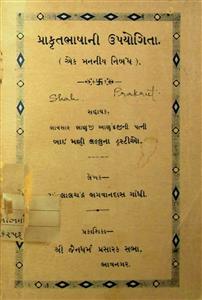 પ્રાકૃતભાષાની ઉપયોગિતા.
( એક મનનીય નિબંધ ).
Shah Prakrit
સહાયક,
ભાવસાર
બાઇ મણી
લેખક—
લાલચંદ્ર ભગવાનદાસ ગાંધી.
પ્રકાશિકા—
શ્રી જૈનધર્મ પ્રસારક સભા,
ભાવનગર.